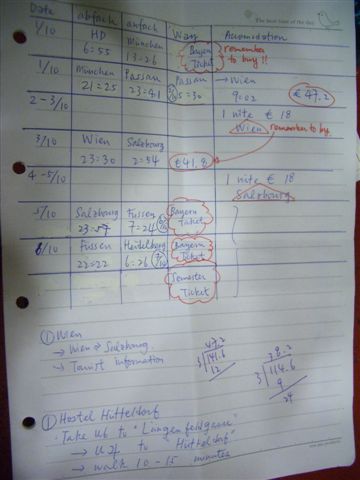 The best time of the day
Date abfach anfach Wars Accomidation
1/10 HD München Bayern remember
6=55 13=26 Ticket to buy!!
1/10 München Passau Passau → Wien
21=25 23=41 5=30 9=02 € 47.2
2-3/10 1 nite € 18
Wien remember to buy
3/10 Wien Salzburg
23=30 2=54 € 41.8
4-5/10 1 nite € 18
Salzbourg
5/10 Salzbourg Fussen Bayern
23=57 7=24 6/10 Ticket
6/10 Fussen Heidelberg Bayern
22=22 6=26 7/10 Ticket
Semester
Ticket
① Wien
→ Wien → Salzbourg.
→ Tourist information
47.2
3 141.6
12
38.2
3 114.6
9
24
① Hostel Hütteldorf
· Take U6 to "Längenfeldgasse"
→ U4 to Hütteldorf
→ walk 10-15 minutes